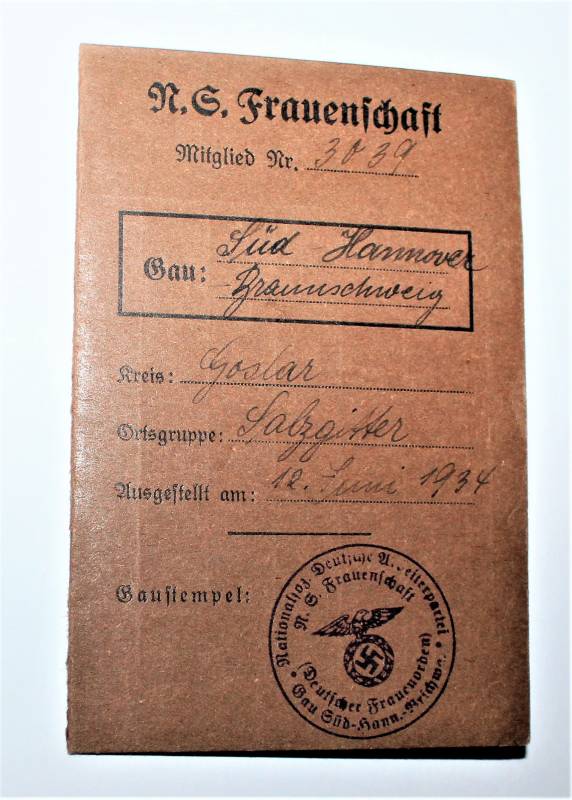 N.S. Frauenschaft
Mitglied Nr. 3039
Gau: Süd-Hannover
Braunschweig
Kreis: Goslar
Ortsgruppe: Salzgitter
Ausgestellt am: 12. Juni 1934
Gaustempel:
Nationalsoz. Deutsche Arbeiterpartei
N. S. Frauenschaft
(Deutscher Frauenorden)
Gau Süd-Hann.